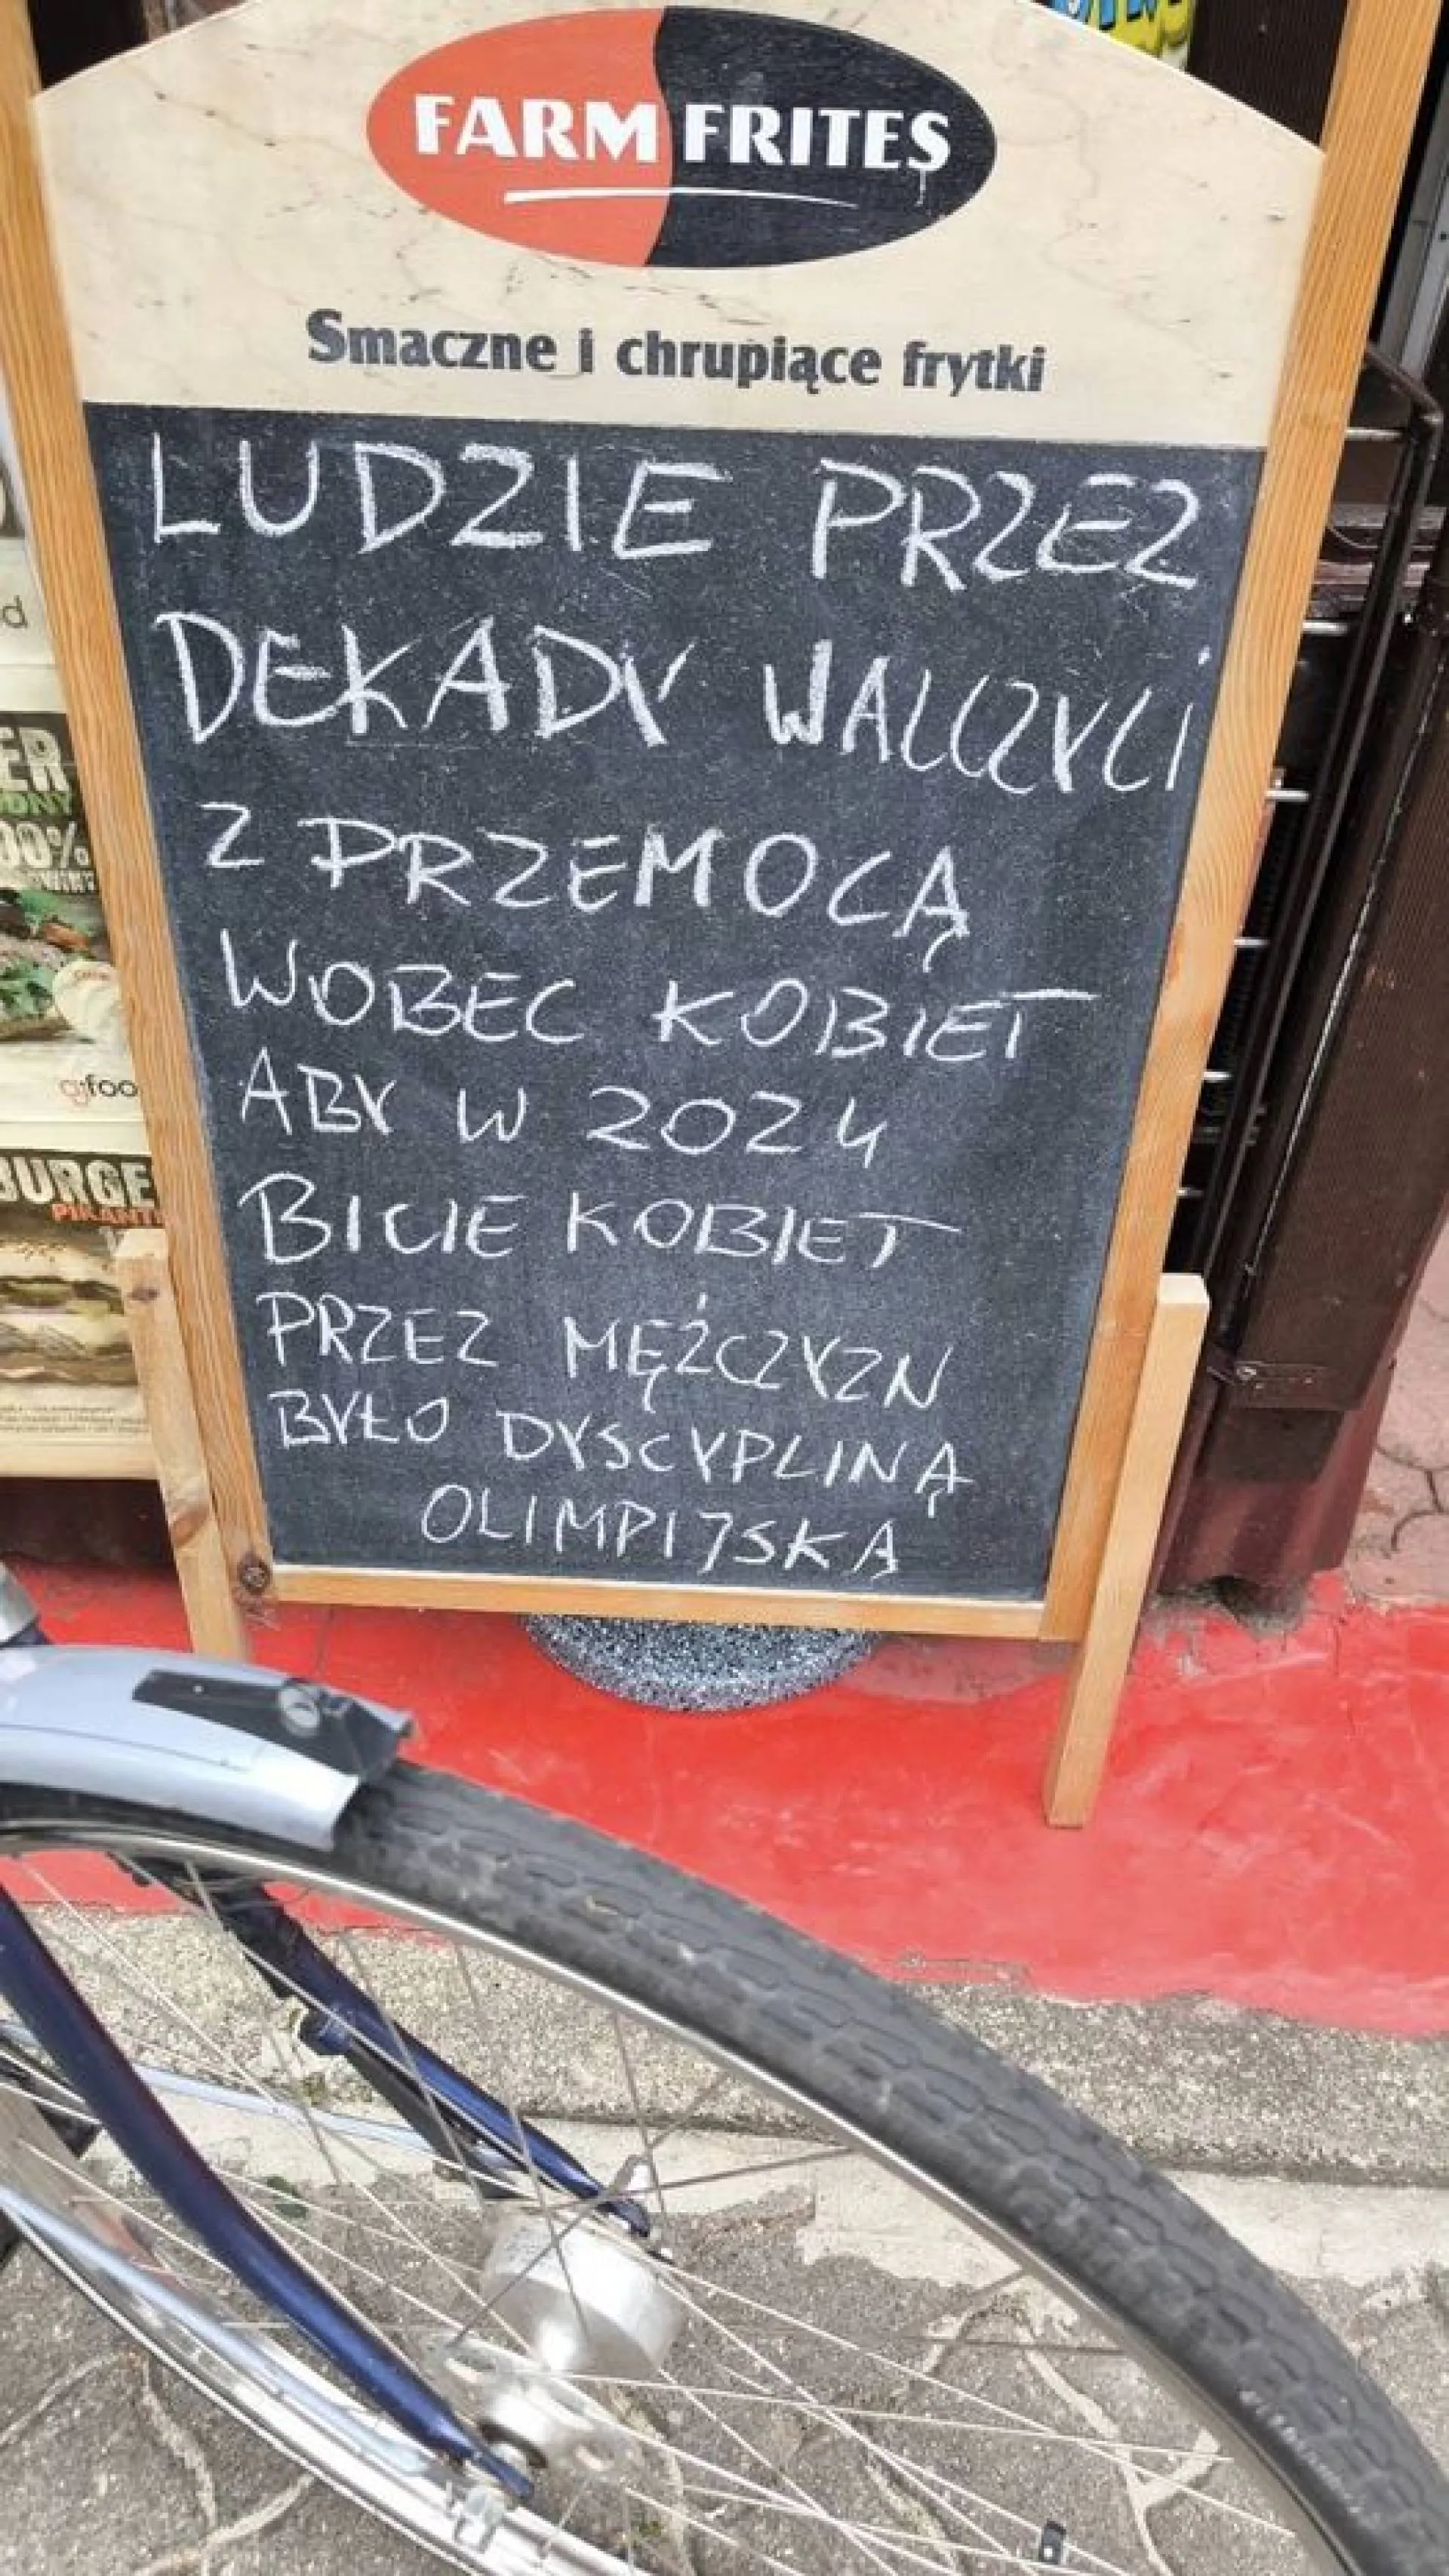 FARM FRITES
Smaczne i chrupiące frytki
LUDZIE PRZEZ
DEKADY WALCZYLI
Z PRZEMOCĄ
WOBEC KOBIET
ABY W 2024
BICIE KOBIET
PRZEZ MĘŻCZYZN
BYŁO DYSCYPLINĄ
OLIMPIJSKĄ
ER
00%
BURGE
PIKANT